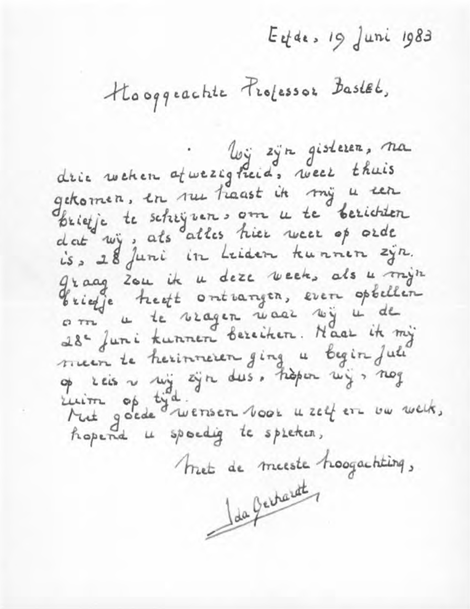 Eefde, 19 Juni 1983
Hooggeachte Professor Bastet,
Wij zijn gisteren, na
drie weken afwezigheid, weer thuis
gekomen, en nu haast ik mij u een
briefje te schrijven, om u te berichten
dat wij, als alles hier weer op orde
is, 28 Juni in Leiden kunnen zijn.
Graag zou ik u deze week, als u mijn
briefje heeft ontvangen, even opbellen
om u te vragen waar wij u de
28e Juni kunnen bereiken. Naar ik mij
meen te herinneren ging u begin Juli
op reis & wij zijn dus, hopen wij, nog
ruim op tijd.
Met goede wensen voor u zelf en uw werk,
hopend u spoedig te spreken,
Met de meeste hoogachting,
Ida Gerhardt